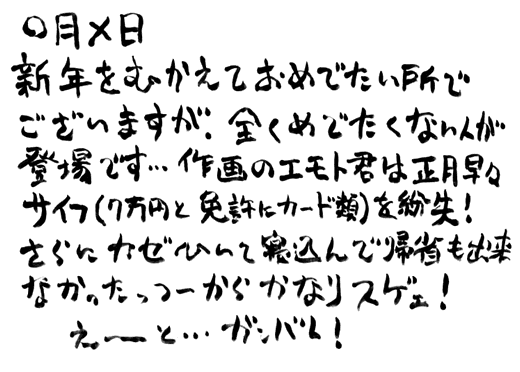 ○月×日
新年をむかえておめでたい所で
ございますが、全くめでたくない人が
登場です…作画のエモト君は正月早々
サイフ(7万円と免許にカード類)を紛失!
さらにカゼひいて寝込んで帰省も出来
なかったっつーからかなりスゲェ!
えーと…ガンバレ!